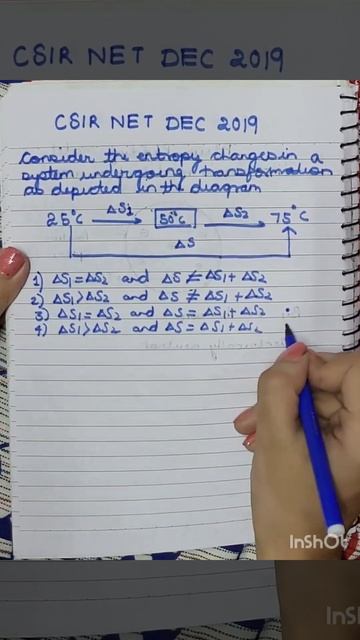 CSIR NET DEC 2019
CSIR NET DEC 2019
Consider the entropy changes in a
system undergoing transformation
as depicted in the diagram
25°C ΔS1 50°C ΔS2 75°C
ΔS
1) ΔS1 = ΔS2 and ΔS ≠ ΔS1 + ΔS2
2) ΔS1 > ΔS2 and ΔS ≠ ΔS1 + ΔS2
3) ΔS1 = ΔS2 and ΔS = ΔS1 + ΔS2
4) ΔS1 > ΔS2 and ΔS = ΔS1 + ΔS2
InShOt
InShOt